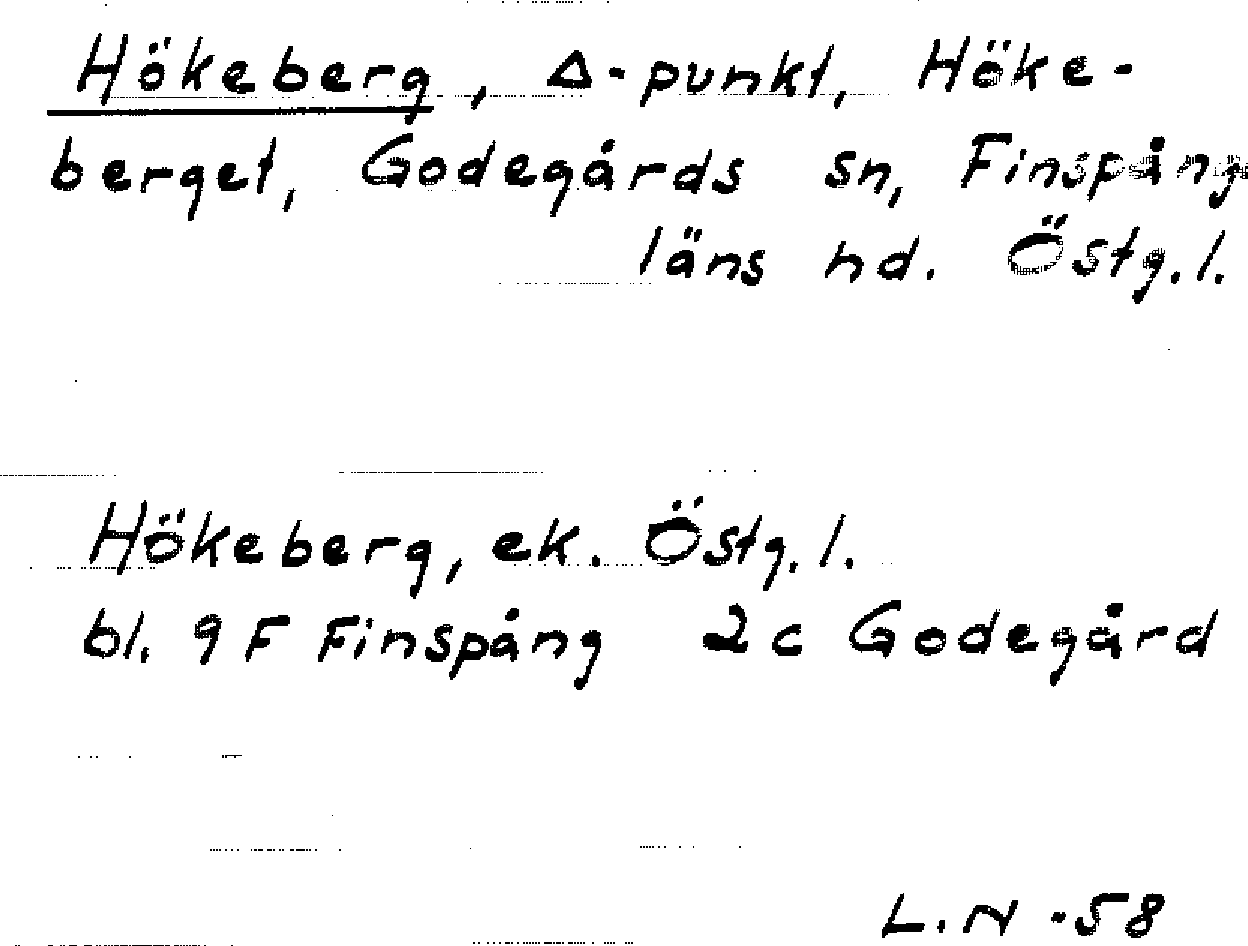 Hökeberg, Δ-punkt, Höke-
berget, Godegårds sn, Finspång
läns hd. Östg.l.
Hökeberg, ek. Östg.l.
bl. 9 F Finspång 2c Godegård
L.N -58